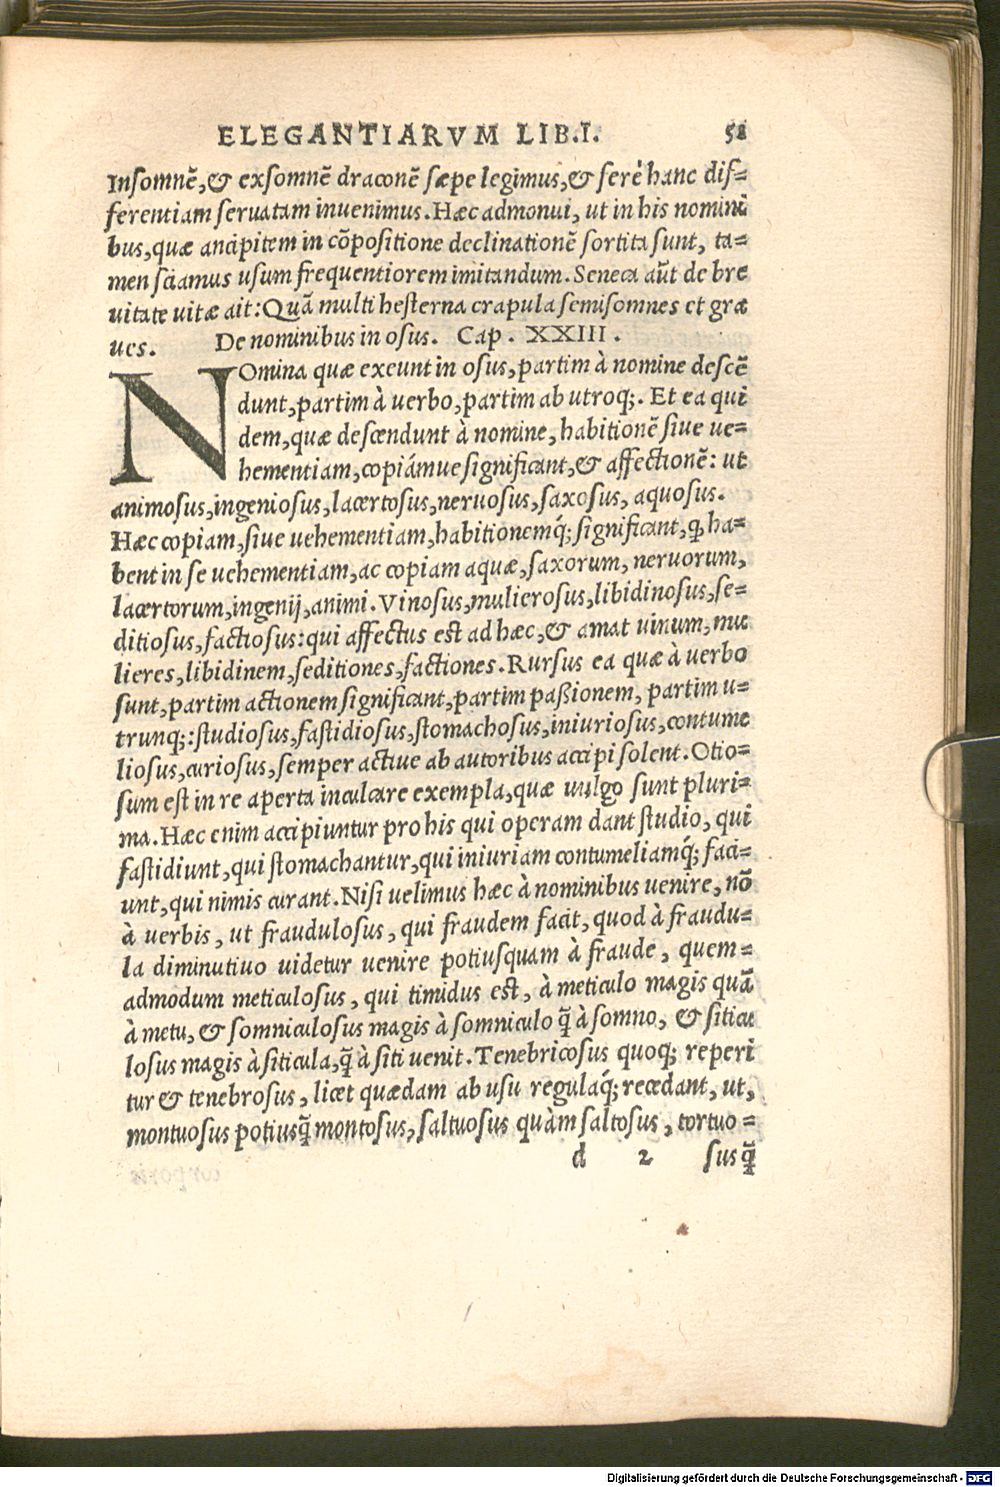 ELEGANTIARVM LIB.I. 51
Insomnē,& exsomnē draconē sæpe legimus,& ferè hanc dif=
ferentiam seruatam inuenimus.Hæc admonui, ut in his nomini
bus,quæ ancipitem in cōpositione declinationē sortita sunt, ta=
men sciamus usum frequentiorem imitandum. Seneca aūt de bre
uitate uitæ ait:Quā multi hesterna crapula semisomnes et græ
ues.
De nominibus in osus. Cap. XXIII.
NOmina quæ exeunt in osus,partim à nomine descē
dunt,partim à uerbo,partim ab utroq;. Et ea qui
dem,quæ descendunt à nomine, habitionē siue ue=
hementiam,copiámue significant,& affectionē: ut
animosus,ingeniosus,lacertosus,neruosus,saxosus, aquosus.
Hæc copiam,siue uehementiam,habitionemq́; significant,ꝙ ha=
bent in se uehementiam,ac copiam aquæ,saxorum, neruorum,
lacertorum,ingenij,animi.Vinosus,mulierosus,libidinosus,se=
ditiosus,factiosus:qui affectus est ad hæc,& amat uinum, mu
lieres,libidinem,seditiones,factiones.Rursus ea quæ à uerbo
sunt,partim actionem significant,partim paßionem, partim u=
trunq;:studiosus,fastidiosus,stomachosus,iniuriosus,contume
liosus,curiosus,semper actiue ab autoribus accipi solent.Otio=
sum est in re aperta inculcare exempla,quæ uulgo sunt pluri=
ma.Hæc enim accipiuntur pro his qui operam dant studio, qui
fastidiunt,qui stomachantur,qui iniuriam contumeliamq́; faci=
unt,qui nimis curant.Nisi uelimus hæc à nominibus uenire, nō
à uerbis, ut fraudulosus, qui fraudem facit, quod à fraudu=
la diminutiuo uidetur uenire potiusquam à fraude, quem=
admodum meticulosus, qui timidus est, à meticulo magis quā
à metu, & somniculosus magis à somniculo q̄ à somno, & siticu
losus magis à siticula,q̄ à siti uenit.Tenebricosus quoq; reperi
tur & tenebrosus, licet quædam ab usu regulaq́; recedant, ut,
montuosus potiusq̄ montosus, saltuosus quàm saltosus, tortuo=
d 2 sus q̄
Digitalisierung gefördert durch die Deutsche Forschungsgemeinschaft - DFG